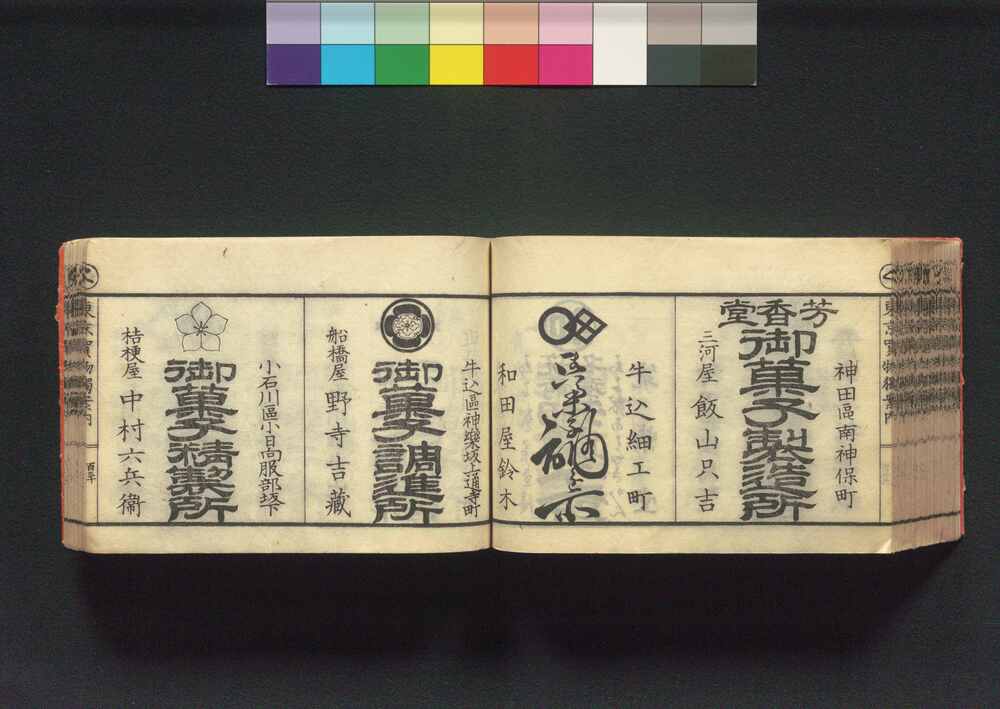 神田區南神保町
芳香堂
御菓子製造所
三河屋 飯山只吉
牛込細工町
和田屋鈴木
牛込區神樂坂上通寺町
御菓子調進所
船橋屋 野寺吉藏
小石川區小日向服部坂下
御菓子精製所
桔梗屋 中村六兵衞